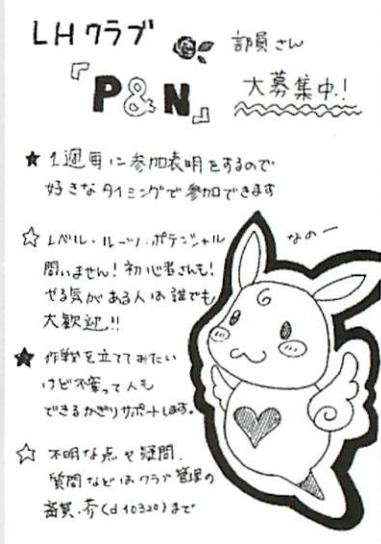 LHクラブ
部員さん
『P&N』
大募集中!
★ 1週毎に参加表明をするので
好きなタイミングで参加できます
☆ レベル・ルーツ・ポテンシャル
問いません!初心者さんも!
やる気がある人は誰でも
大歓迎!!
なのー
★ 作戦を立ててみたい
けど不安って人も
できるかぎりサポートします。
☆ 不明な点や疑問、
質問などはクラブ管理の
(d10320)まで